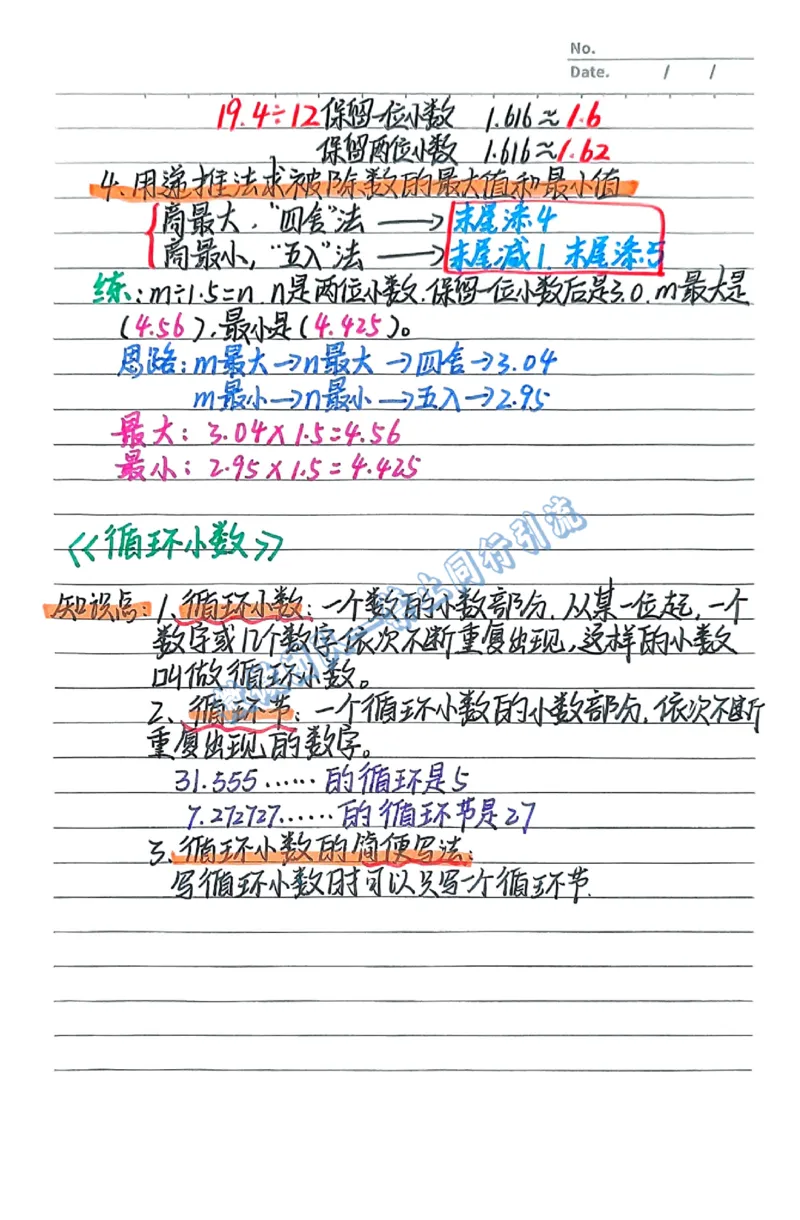 No.
Date. / /
19.4÷12保留一位小数 1.616≈1.6
保留两位小数 1.616≈1.62
4、用递推法求被除数的最大值和最小值
商最大，“四舍”法 → 末尾添4
商最小，“五入”法 → 末尾减1，末尾添5
练：m÷1.5=n，n是两位小数，保留一位小数后是3.0，m最大是
(4.56)，最小是(4.425)。
思路：m最大→n最大→四舍→3.04
m最小→n最小→五入→2.95
最大：3.04×1.5=4.56
最小：2.95×1.5=4.425
《循环小数》
知识点：1、循环小数：一个数的小数部分，从某一位起，一个
数字或几个数字依次不断重复出现，这样的小数
叫做循环小数。
2、循环节：一个循环小数的小数部分，依次不断
重复出现的数字。
31.555……的循环是5
7.272727……的循环节是27
3、循环小数的简便写法：
写循环小数时可以只写一个循环节.
同行引流